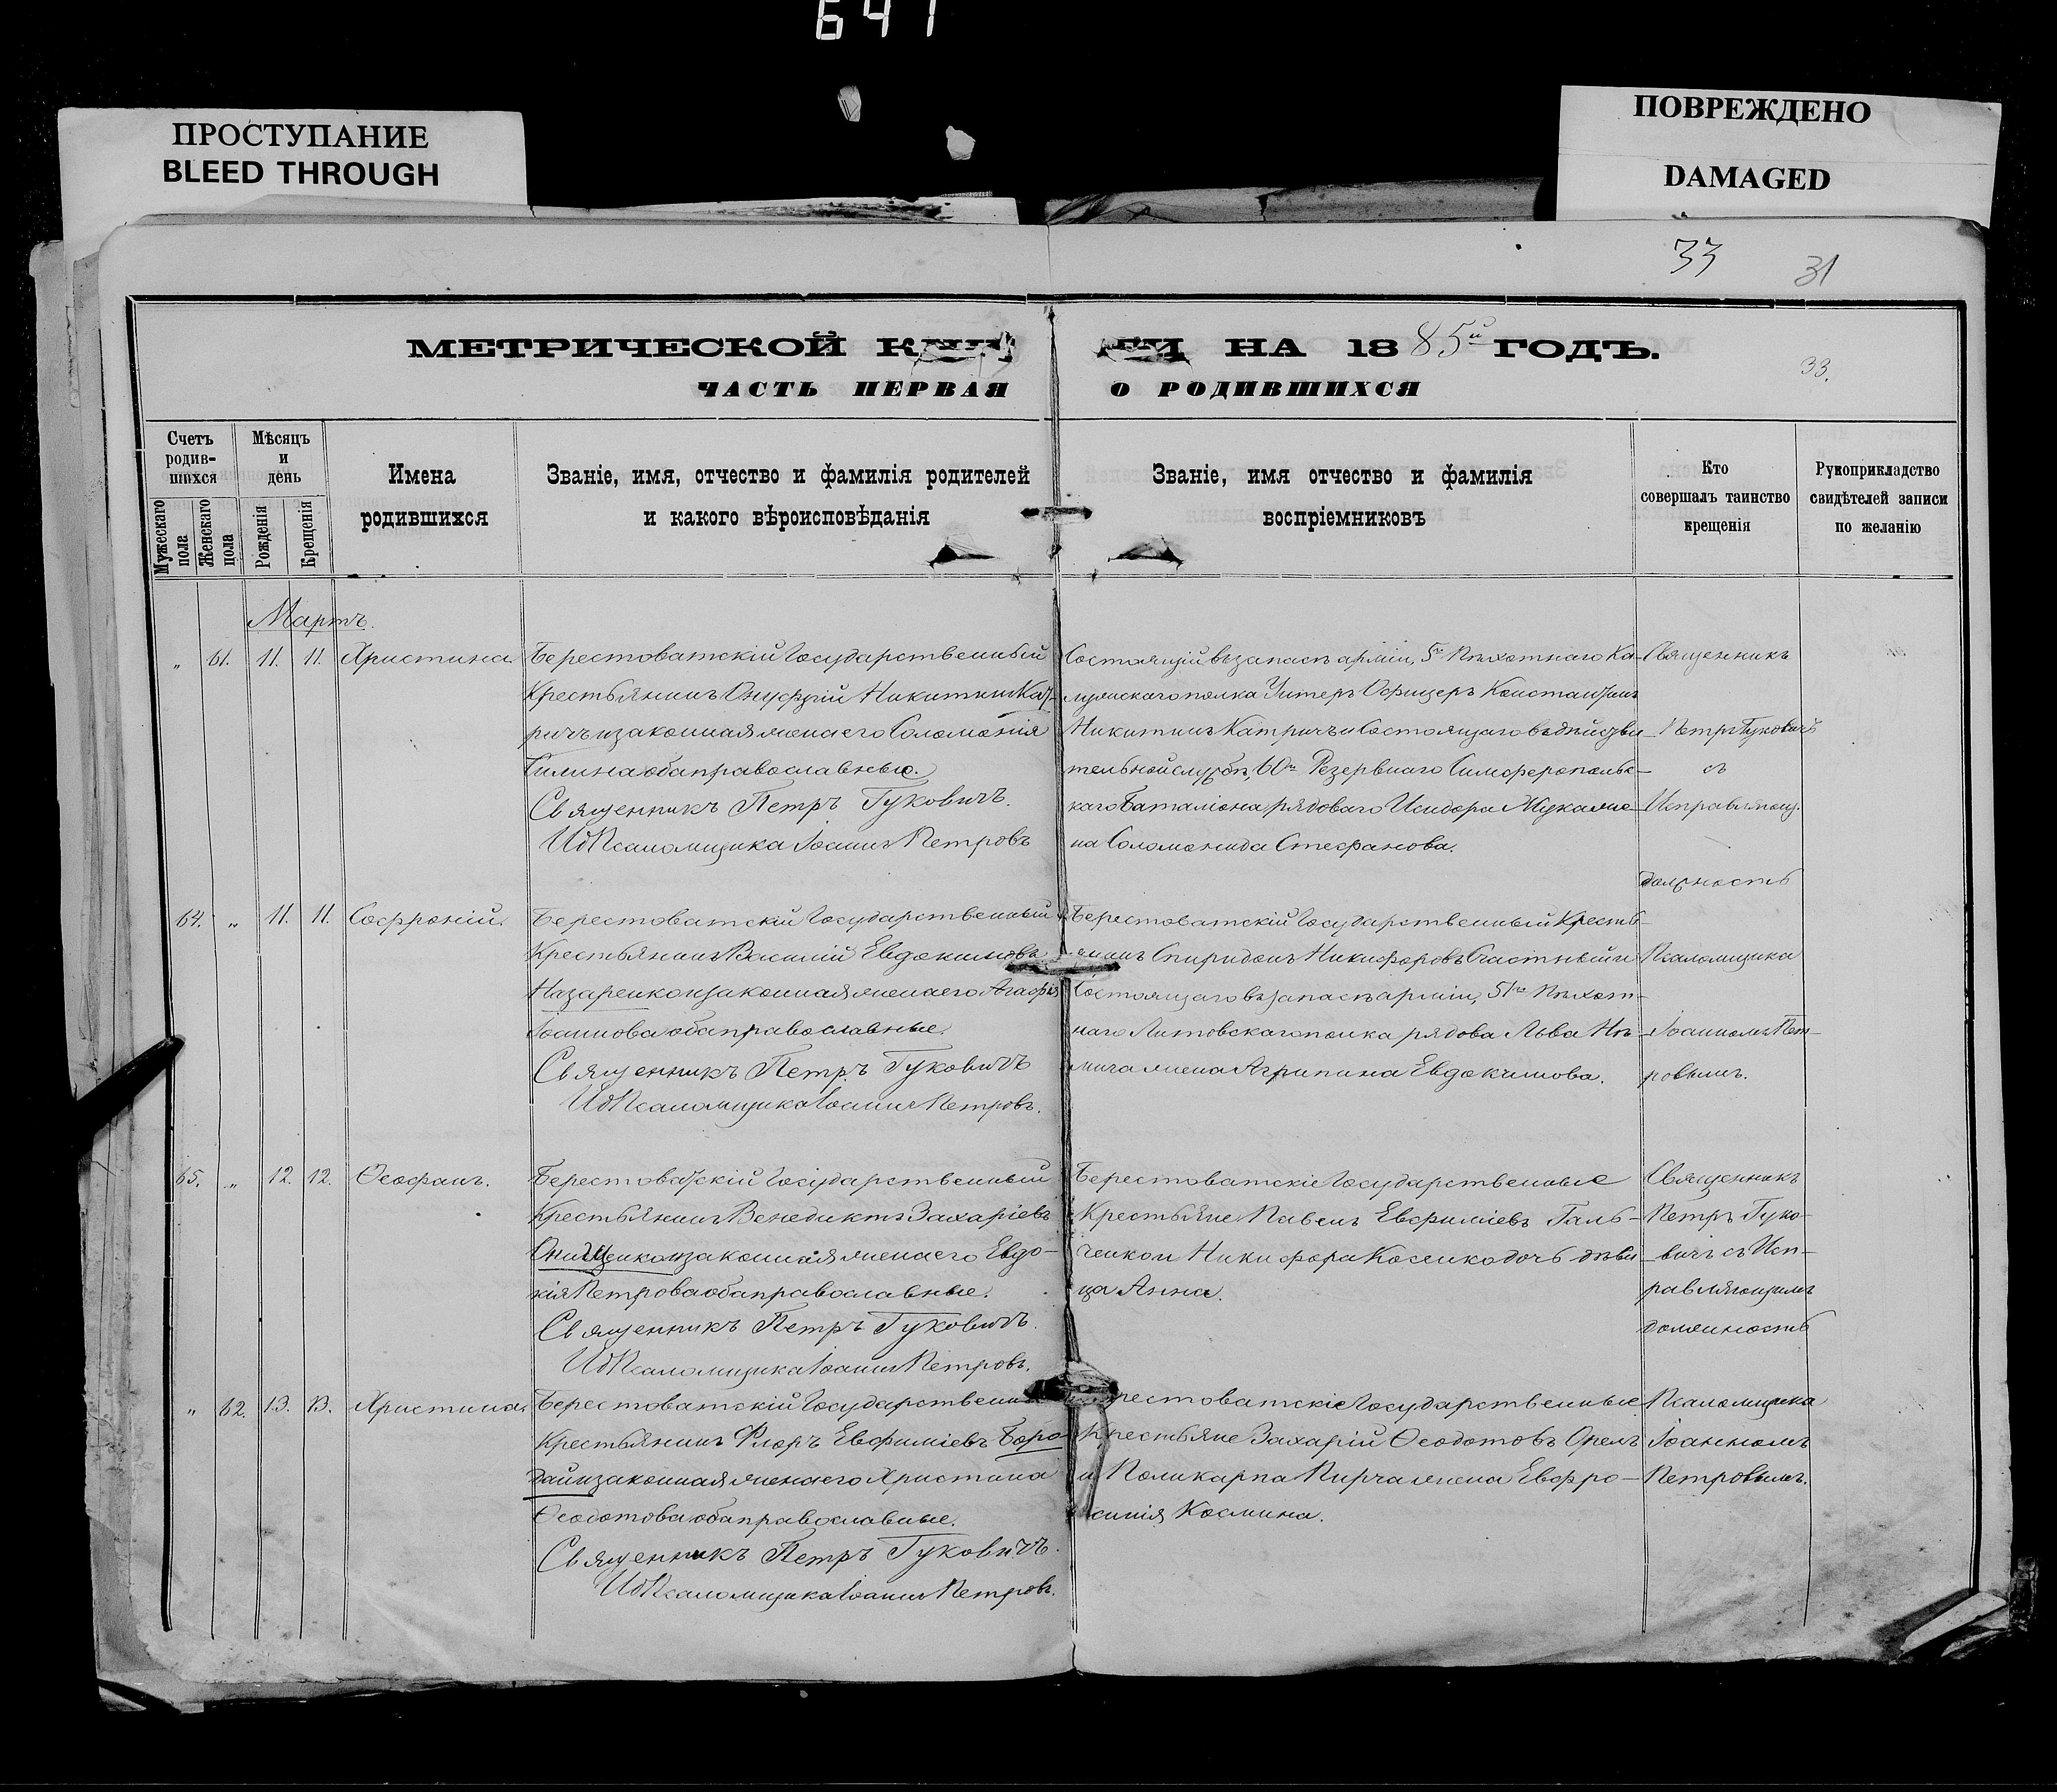 641
ПРОСТУПАНИЕ
BLEED THROUGH
ПОВРЕЖДЕНО
DAMAGED
33
31
МЕТРИЧЕСКОЙ КНИГИ НА 1885й ГОДЪ.
33.
ЧАСТЬ ПЕРВАЯ О РОДИВШИХСЯ
Счетъ родив-шихся
Мужескаго пола
Женскаго пола
Мѣсяцъ и день
Рожденія
Крещенія
Имена родившихся
Званіе, имя, отчество и фамилія родителей
и какого вѣроисповѣданія
Званіе, имя отчество и фамилія
воспріемниковъ
Кто
совершалъ таинство
крещенія
Рукоприкладство
свидѣтелей записи
по желанію
Мартъ.
„ 61. 11. 11. Христина.
Берестоватскій Государственный
Крестьянинъ Онуфрій Никитинъ Кат-
ричъ и законная жена его Соломонія
Силина оба православные.
Священникъ Петръ Гуковичъ.
Ид Псаломщика Іоаннъ Петровъ
Состоящій въ запасѣ арміи, 5го Пѣхотнаго Ка-
лужскаго полка Унтеръ Офицеръ Константинъ
Никитинъ Катричъ и Состоящаго въ дѣйстви
тельной службѣ, 60го Резервнаго Симферопольс-
каго Баталіона рядоваго Исидора жена
на Соломонида Стефанова.
Священникъ
Петръ Гуковичъ
съ
Исправляющ.
должность
Псаломщика
Іоанномъ Пет-
ровымъ.
64. „ 11. 11. Софроній.
Берестоватскій Государственный
Крестьянинъ Василій Евдокимовъ
Назаренко и законная жена его Агафія
Іоаннова оба православные.
Священникъ Петръ Гуковичъ
Ид Псаломщика Іоаннъ Петровъ.
Берестоватскій Государственный Кресть-
янинъ Спиридонъ Никифоровъ Счастный и
Состоящаго въ запасѣ арміи, 51го Пѣхот-
наго Литовскаго полка рядова Льва
жена Агрипина Евдокимова.
65. „ 12. 12. Ѳеофанъ.
Берестоватскій Государственный
Крестьянинъ Венедиктъ Захаріевъ
Онищенко и законная жена его Евдо-
кія Петрова оба православные.
Священникъ Петръ Гуковичъ.
Ид Псаломщика Іоаннъ Петровъ.
Берестоватскіе Государственные
Крестьяне Павелъ Евфиміевъ Галь-
ченко и Никифора Косенко дочь дѣви
ца Анна.
Священникъ
Петръ Гуко-
вичъ съ Исп-
равляющимъ
должность
Псаломщика
Іоанномъ
Петровымъ.
„ 62. 13. 13. Христина.
Берестоватскій Государственный
Крестьянинъ Флоръ Евфиміевъ Боро
дай и законная жена его Христина
Ѳеодотова оба православные.
Священникъ Петръ Гуковичъ.
Ид Псаломщика Іоаннъ Петровъ.
Берестоватскіе Государственные
Крестьяне Захарій Ѳеодотовъ Орелъ
и Поликарпа Кирча жена Евфро-
синія Космина.